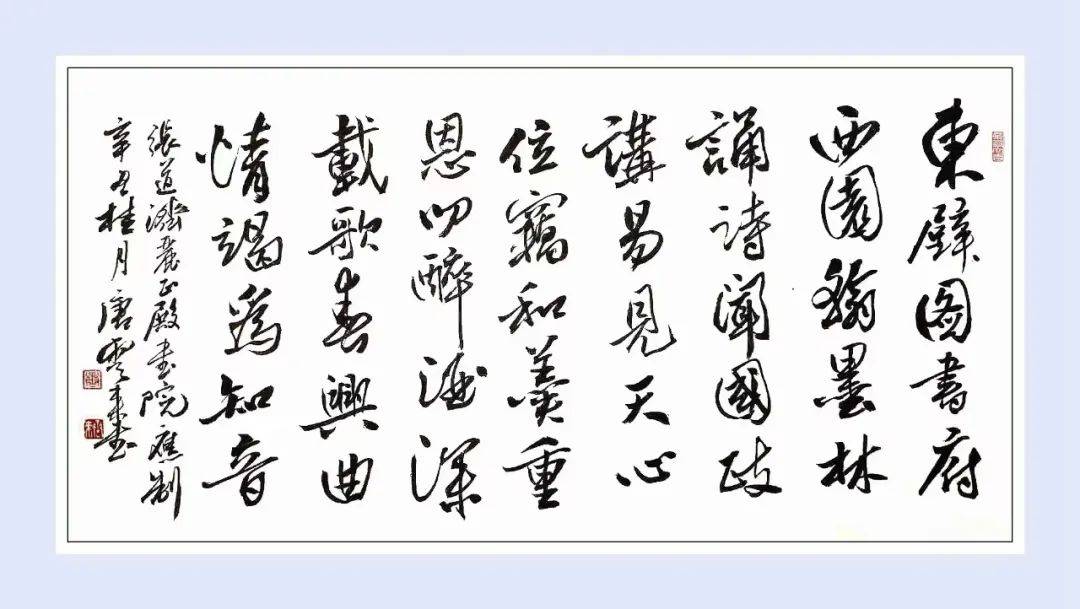 東壁图書府
西園翰墨林
誦詩聞國政
講易見天心
位竊和羹重
恩叨醉酒深
載歌春興曲
情竭為知音
張道濟麗正殿書院應制
辛丑桂月唐雲来書